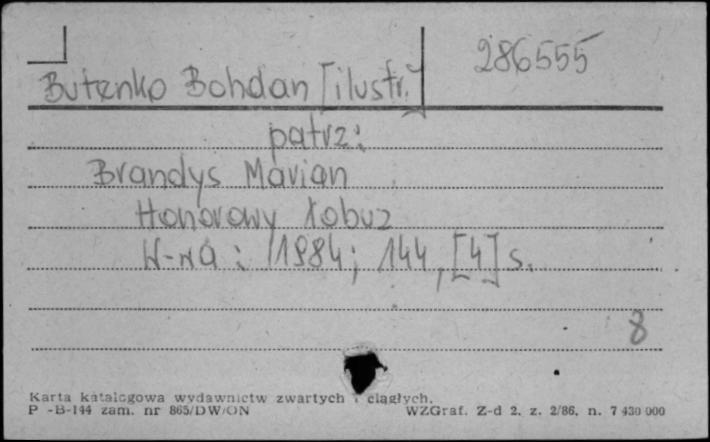 286555
Butenko Bohdan [ilustr.]
patrz:
Brandys Marian
Honorowy łobuz
W-wa : 1984; 144, [4] s.
8
Karta katalogowa wydawnictw zwartych i ciągłych.
P -B-144 zam. nr 865/DW/ON WZGraf. Z-d 2. z. 2/86. n. 7 430 000